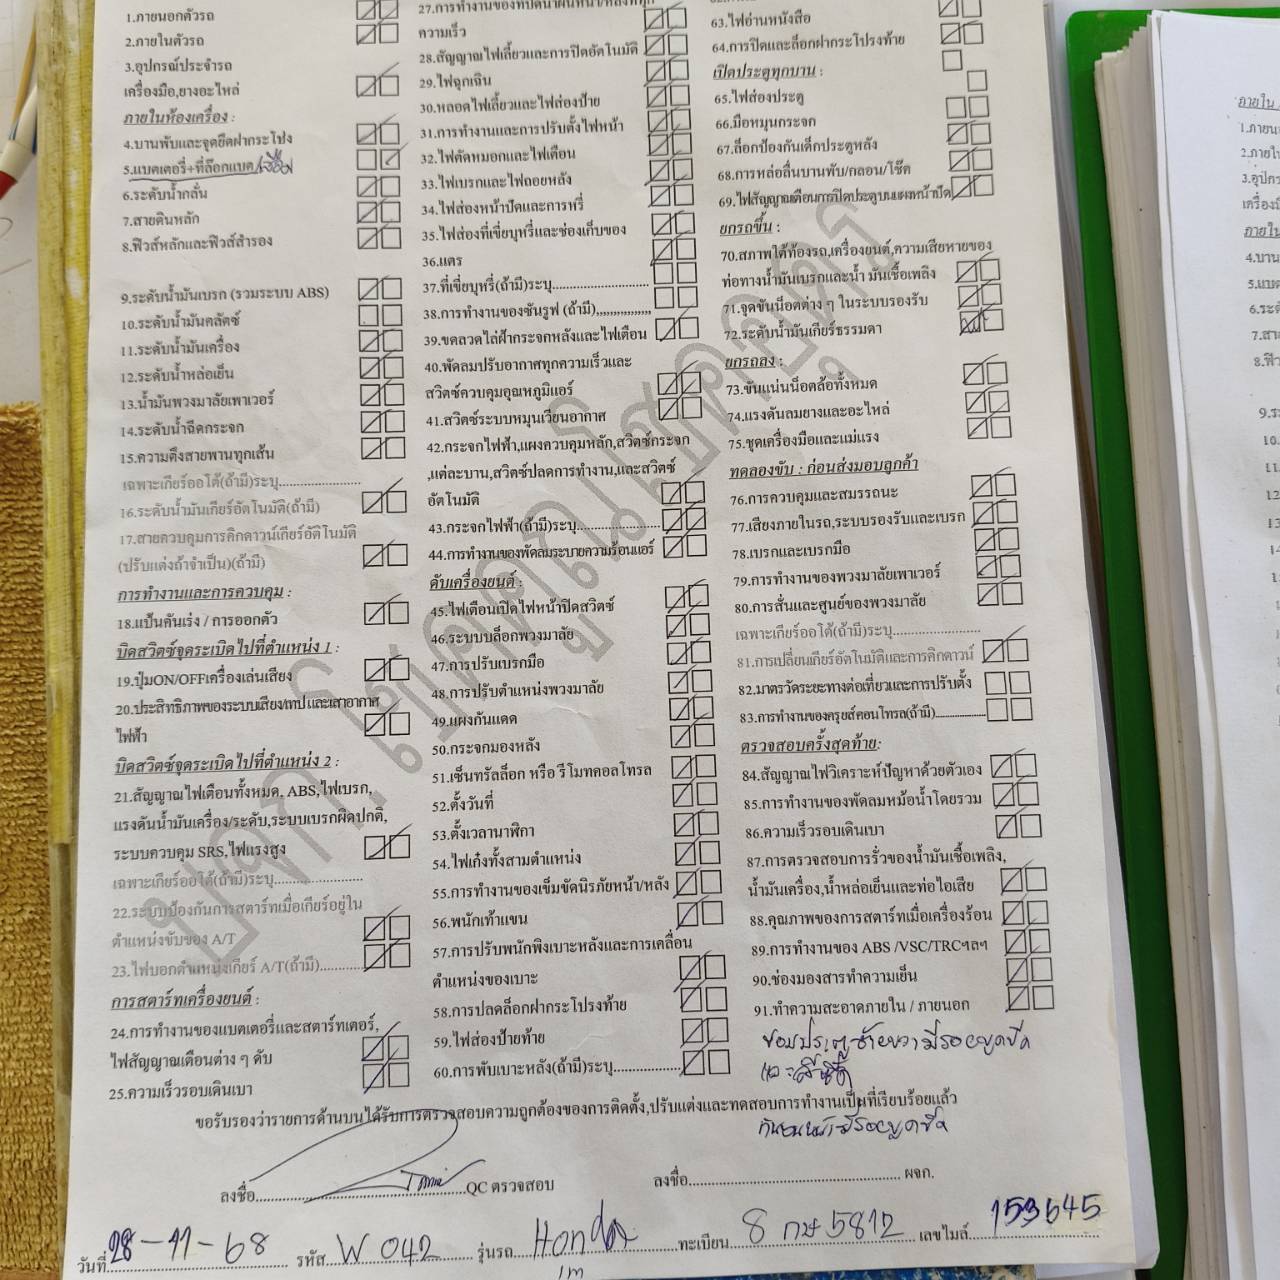 1.ภายนอกตัวรถ
2.ภายในตัวรถ
3.อุปกรณ์ประจำรถ
เครื่องมือ,ยางอะไหล่
ภายในห้องเครื่อง :
4.บานพับและจุดยึดฝากระโปง
5.แบตเตอรี่+ที่ล๊อกแบต/เสื่อม
6.ระดับน้ำกลั่น
7.สายดินหลัก
8.ฟิวส์หลักและฟิวส์สำรอง
9.ระดับน้ำมันเบรก (รวมระบบ ABS)
10.ระดับน้ำมันคลัตซ์
11.ระดับน้ำมันเครื่อง
12.ระดับน้ำหล่อเย็น
13.น้ำมันพวงมาลัยเพาเวอร์
14.ระดับน้ำฉีดกระจก
15.ความตึงสายพานทุกเส้น
เฉพาะเกียร์ออโต้(ถ้ามี)ระบุ
16.ระดับน้ำมันเกียร์อัตโนมัติ(ถ้ามี)
17.สายควบคุมการคิกดาวน์เกียร์อัติโนมัติ
(ปรับแต่งถ้าจำเป็น)(ถ้ามี)
การทำงานและการควบคุม :
18.แป้นคันเร่ง / การออกตัว
บิดสวิตซ์จุดระเบิดไปที่ตำแหน่ง 1 :
19.ปุ่มON/OFFเครื่องเล่นเสียง
20.ประสิทธิภาพของระบบเสียง/เทปและเสาอากาศ
ไฟฟ้า
บิดสวิตซ์จุดระเบิดไปที่ตำแหน่ง 2 :
21.สัญญาณไฟเตือนทั้งหมด, ABS,ไฟเบรก,
แรงดันน้ำมันเครื่อง/ระดับ,ระบบเบรกผิดปกติ,
ระบบควบคุม SRS,ไฟแรงสูง
เฉพาะเกียร์ออโต้(ถ้ามี)ระบุ
22.ระบบป้องกันการสตาร์ทเมื่อเกียร์อยู่ใน
ตำแหน่งขับของ A/T
23.ไฟบอกตำแหน่งเกียร์ A/T(ถ้ามี)
การสตาร์ทเครื่องยนต์ :
24.การทำงานของแบตเตอรี่และสตาร์ทเตอร์,
ไฟสัญญาณเตือนต่าง ๆ ดับ
25.ความเร็วรอบเดินเบา
ความเร็ว
28.สัญญาณไฟเลี้ยวและการปิดอัตโนมัติ
29.ไฟฉุกเฉิน
30.หลอดไฟเลี้ยวและไฟส่องป้าย
31.การทำงานและการปรับตั้งไฟหน้า
32.ไฟตัดหมอกและไฟเตือน
33.ไฟเบรกและไฟถอยหลัง
34.ไฟส่องหน้าปัดและการหรี่
35.ไฟส่องที่เขี่ยบุหรี่และช่องเก็บของ
36.แตร
37.ที่เขี่ยบุหรี่(ถ้ามี)ระบุ
38.การทำงานของซันรูฟ (ถ้ามี)
39.ขดลวดไล่ฝ้ากระจกหลังและไฟเตือน
40.พัดลมปรับอากาศทุกความเร็วและ
สวิตซ์ควบคุมอุณหภูมิแอร์
41.สวิตซ์ระบบหมุนเวียนอากาศ
42.กระจกไฟฟ้า,แผงควบคุมหลัก,สวิตซ์กระจก
,แต่ละบาน,สวิตซ์ปลดการทำงาน,และสวิตซ์
อัตโนมัติ
43.กระจกไฟฟ้า(ถ้ามี)ระบุ
44.การทำงานของพัดลมระบายความร้อนแอร์
ดับเครื่องยนต์ :
45.ไฟเตือนเปิดไฟหน้าปิดสวิตซ์
46.ระบบบล็อกพวงมาลัย
47.การปรับเบรกมือ
48.การปรับตำแหน่งพวงมาลัย
49.แผงกันแดด
50.กระจกมองหลัง
51.เซ็นทรัลล็อก หรือ รีโมทคอลโทรล
52.ตั้งวันที่
53.ตั้งเวลานาฬิกา
54.ไฟเก๋งทั้งสามตำแหน่ง
55.การทำงานของเข็มขัดนิรภัยหน้า/หลัง
56.พนักเท้าแขน
57.การปรับพนักพิงเบาะหลังและการเคลื่อน
ตำแหน่งของเบาะ
58.การปลดล็อกฝากระโปรงท้าย
59.ไฟส่องป้ายท้าย
60.การพับเบาะหลัง(ถ้ามี)ระบุ
63.ไฟอ่านหนังสือ
64.การปิดและล็อกฝากระโปรงท้าย
เปิดประตูทุกบาน :
65.ไฟส่องประตู
66.มือหมุนกระจก
67.ล็อกป้องกันเด็กประตูหลัง
68.การหล่อลื่นบานพับ/กลอน/โช๊ต
69.ไฟสัญญาณเตือนการปิดประตูบนแผงหน้าปัด
ยกรถขึ้น :
70.สภาพใต้ท้องรถ,เครื่องยนต์,ความเสียหายของ
ท่อทางน้ำมันเบรกและน้ำ มันเชื้อเพลิง
71.จุดขันน็อตต่าง ๆ ในระบบรองรับ
72.ระดับน้ำมันเกียร์ธรรมดา
ยกรถลง :
73.ขันแน่นน็อตล้อทั้งหมด
74.แรงดันลมยางและอะไหล่
75.ชุดเครื่องมือและแม่แรง
ทดลองขับ : ก่อนส่งมอบลูกค้า
76.การควบคุมและสมรรถนะ
77.เสียงภายในรถ,ระบบรองรับและเบรก
78.เบรกและเบรกมือ
79.การทำงานของพวงมาลัยเพาเวอร์
80.การสั่นและศูนย์ของพวงมาลัย
เฉพาะเกียร์ออโต้(ถ้ามี)ระบุ
81.การเปลี่ยนเกียร์อัตโนมัติและการคิกดาวน์
82.มาตรวัดระยะทางต่อเที่ยวและการปรับตั้ง
83.การทำงานของครุยส์คอนโทรล(ถ้ามี)
ตรวจสอบครั้งสุดท้าย:
84.สัญญาณไฟวิเคราะห์ปัญหาด้วยตัวเอง
85.การทำงานของพัดลมหม้อน้ำโดยรวม
86.ความเร็วรอบเดินเบา
87.การตรวจสอบการรั่วของน้ำมันเชื้อเพลิง,
น้ำมันเครื่อง,น้ำหล่อเย็นและท่อไอเสีย
88.คุณภาพของการสตาร์ทเมื่อเครื่องร้อน
89.การทำงานของ ABS /VSC/TRCฯลฯ
90.ช่องมองสารทำความเย็น
91.ทำความสะอาดภายใน / ภายนอก
ขอบประตูซ้ายขวามีรอยขูดขีด
กันชนหน้ามีรอยขูดขีด
ขอรับรองว่ารายการด้านบนได้รับการตรวจสอบความถูกต้องของการติดตั้ง,ปรับแต่งและทดสอบการทำงานเป็นที่เรียบร้อยแล้ว
ลงชื่อ QC ตรวจสอบ ลงชื่อ ผจก.
วันที่ 28-11-68 รหัส W 042 รุ่นรถ Honda ทะเบียน 8 กษ 5812 เลขไมล์ 153645
บจก.โชคคูณโชคยูคาร์